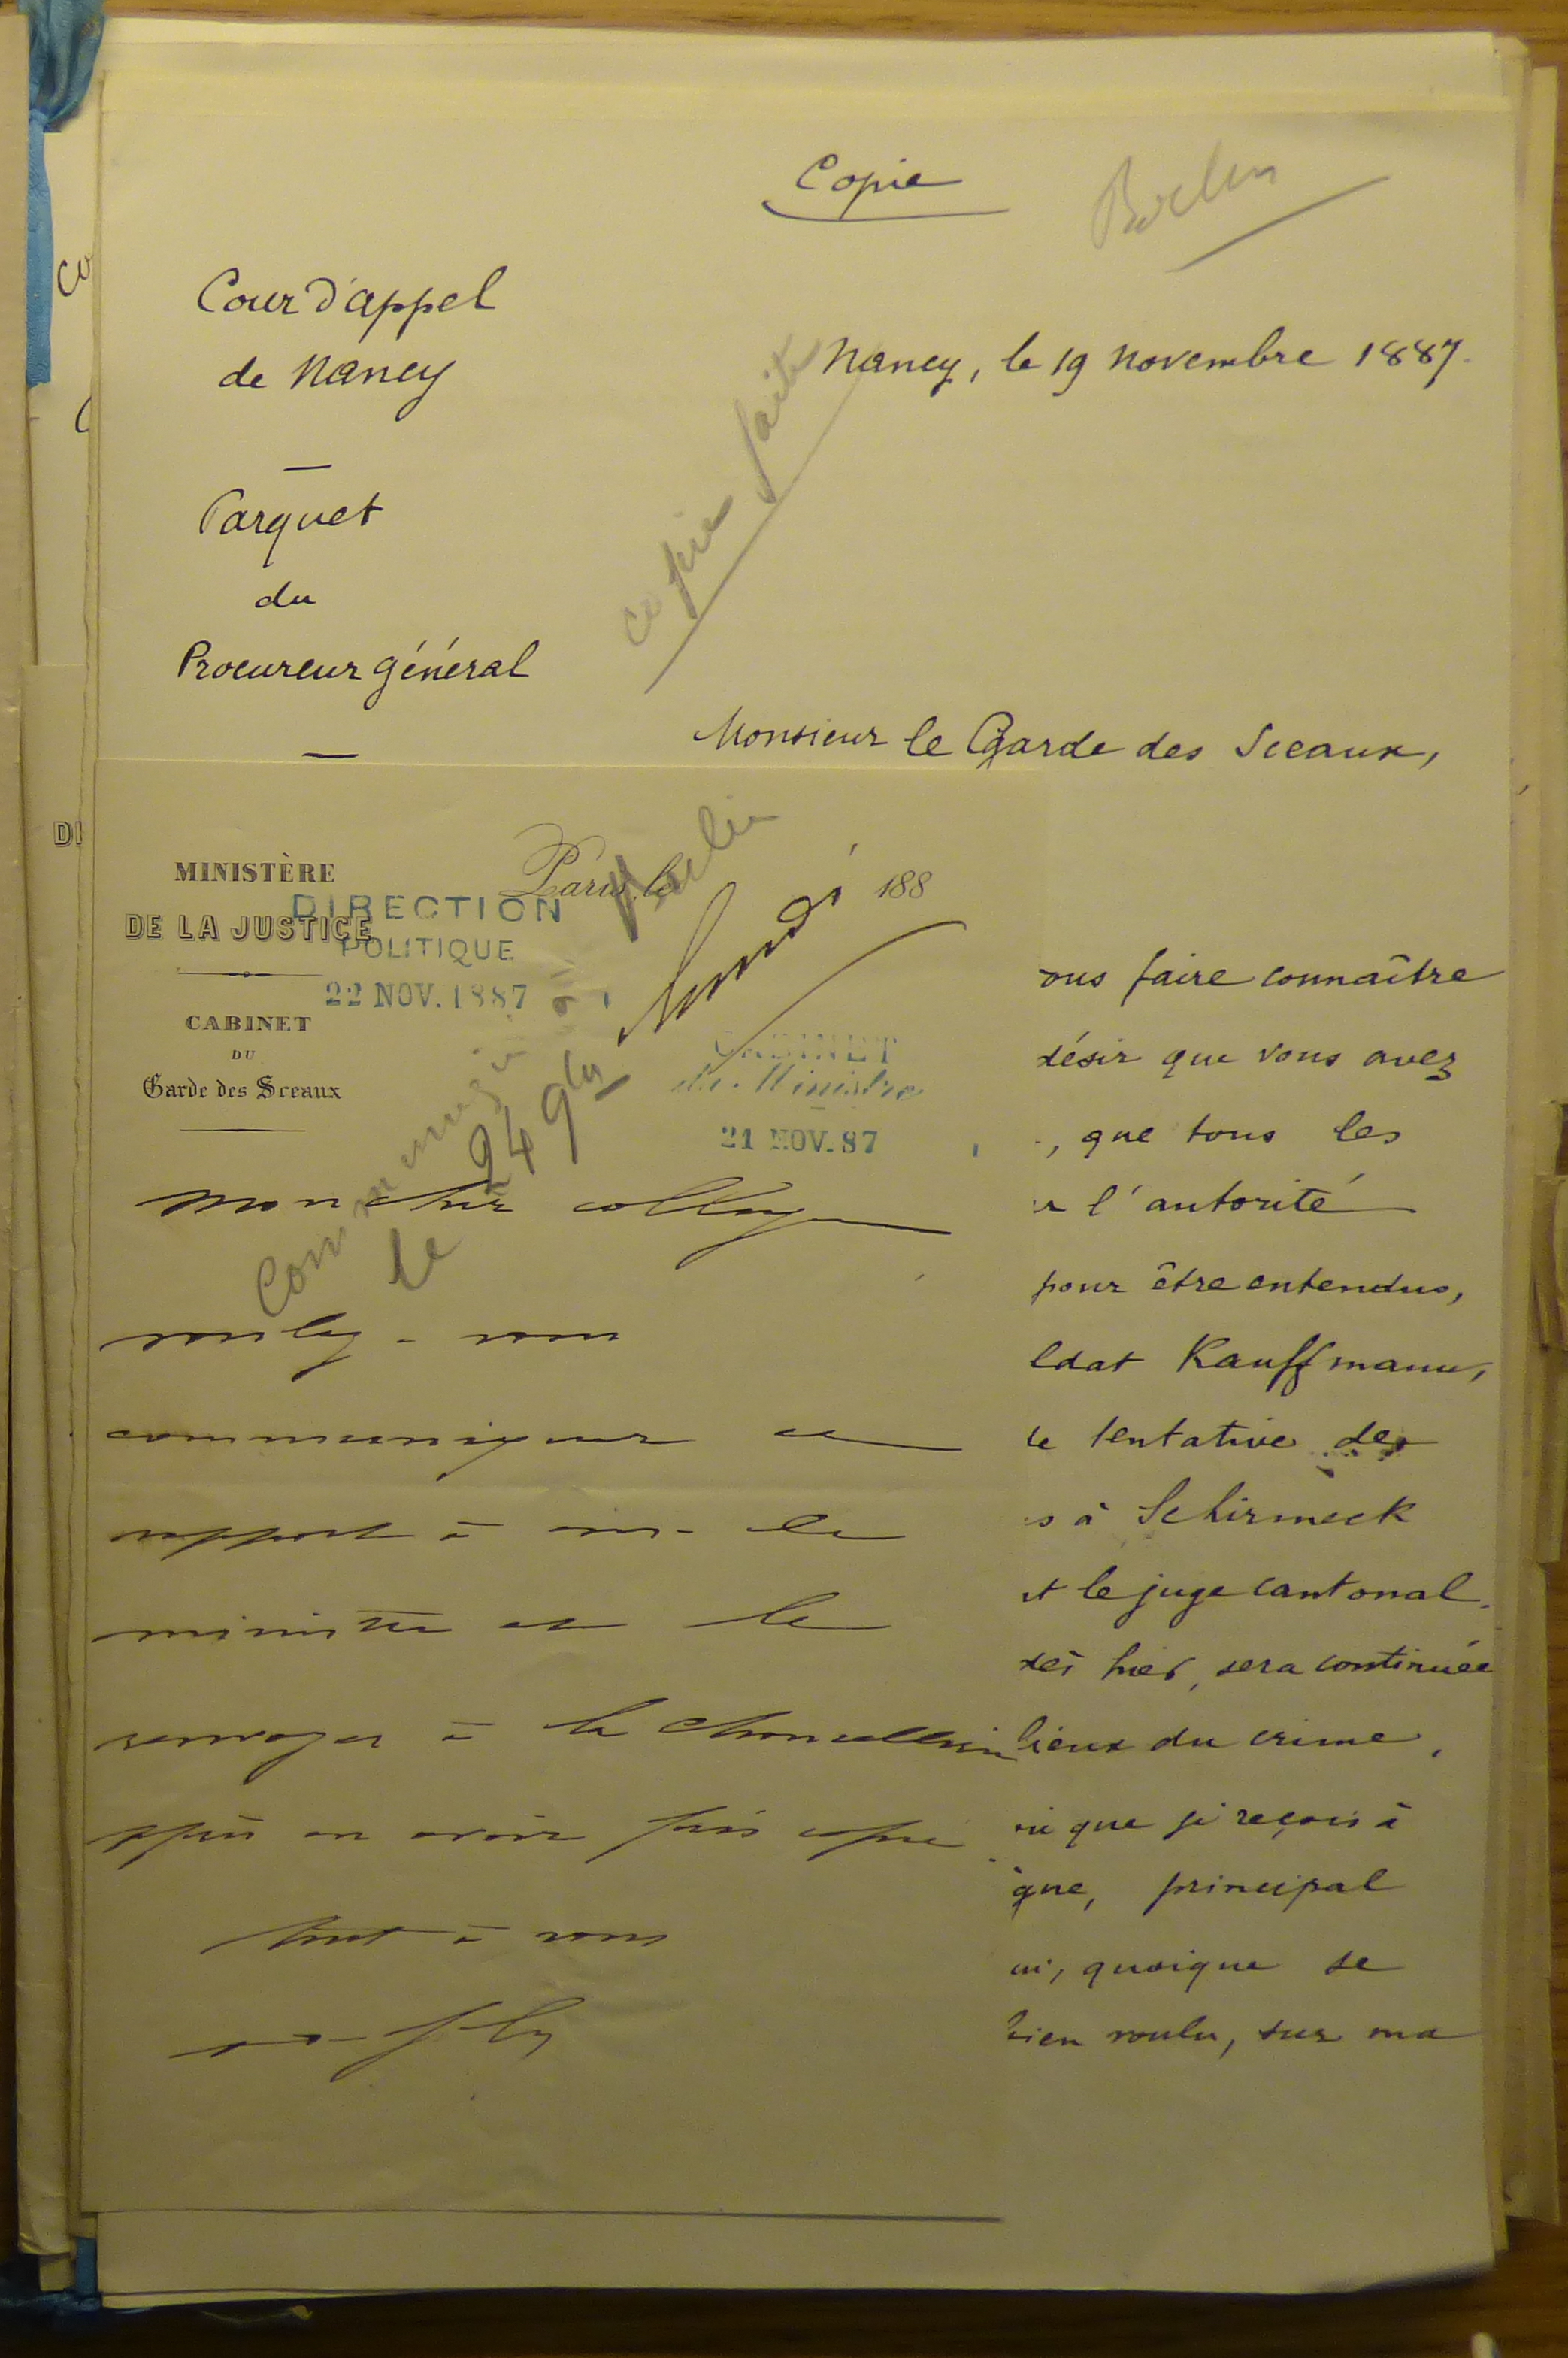 Copie
Berlin
Cour d'appel
de Nancy
Nancy, le 19 novembre 1887.
copie faite
Parquet
du
Procureur général
Monsieur le Garde des Sceaux,
MINISTÈRE
DE LA JUSTICE
CABINET
DU
Garde des Sceaux
Paris, le
188
Berlin
DIRECTION
POLITIQUE
22 NOV. 1887
CABINET
du Ministre
21 NOV. 87
Communiqué
le 24 9bre
Mon cher collègue
voulez-vous
communiquer ce
rapport à M. le
ministre et le
renvoyer à la chancellerie
après en avoir pris copie
tout à vous
ous faire connaître
désir que vous avez
, que tous les
r l'autorité
pour être entendus,
ldat Kauffmann,
e tentative de
s à Schirmeck
et le juge cantonal.
dès hier, sera continuée
lieux du crime.
ui que je reçois à
gne, principal
ui, quoique se
bien voulu, sur ma